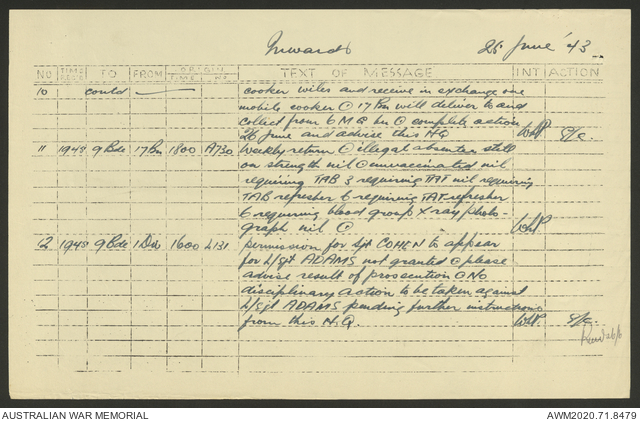 Inwards 25 June '43
NO TIME REC'D TO FROM ORIGIN TIME ORIGIN NR TEXT OF MESSAGE INT ACTION
10 contd cooker wiles and receive in exchange one
mobile cooker @ 17 Bn will deliver to and
collect from 6 M G bn @ complete action
26 June and advise this HQ WHP S/C.
11 1943 9 Bde 17 Bn 1800 A730 Weekly return @ illegal absentees still
on strength nil @ unvaccinated nil
requiring TAB 3 requiring TAT nil requiring
TAB refresher 6 requiring TAT refresher
6 requiring blood group X ray photo-
graph nil @ WHP
12 1945 9 Bde 1 Div 1600 L131 permission for Sjt COHEN to appear
for L/Sjt ADAMS not granted @ please
advise result of prosecution @ No
disciplinary action to be taken against
L/Sjt ADAMS pending further instructions
from this H.Q. WHP. S/C.
AUSTRALIAN WAR MEMORIAL AWM2020.71.8479